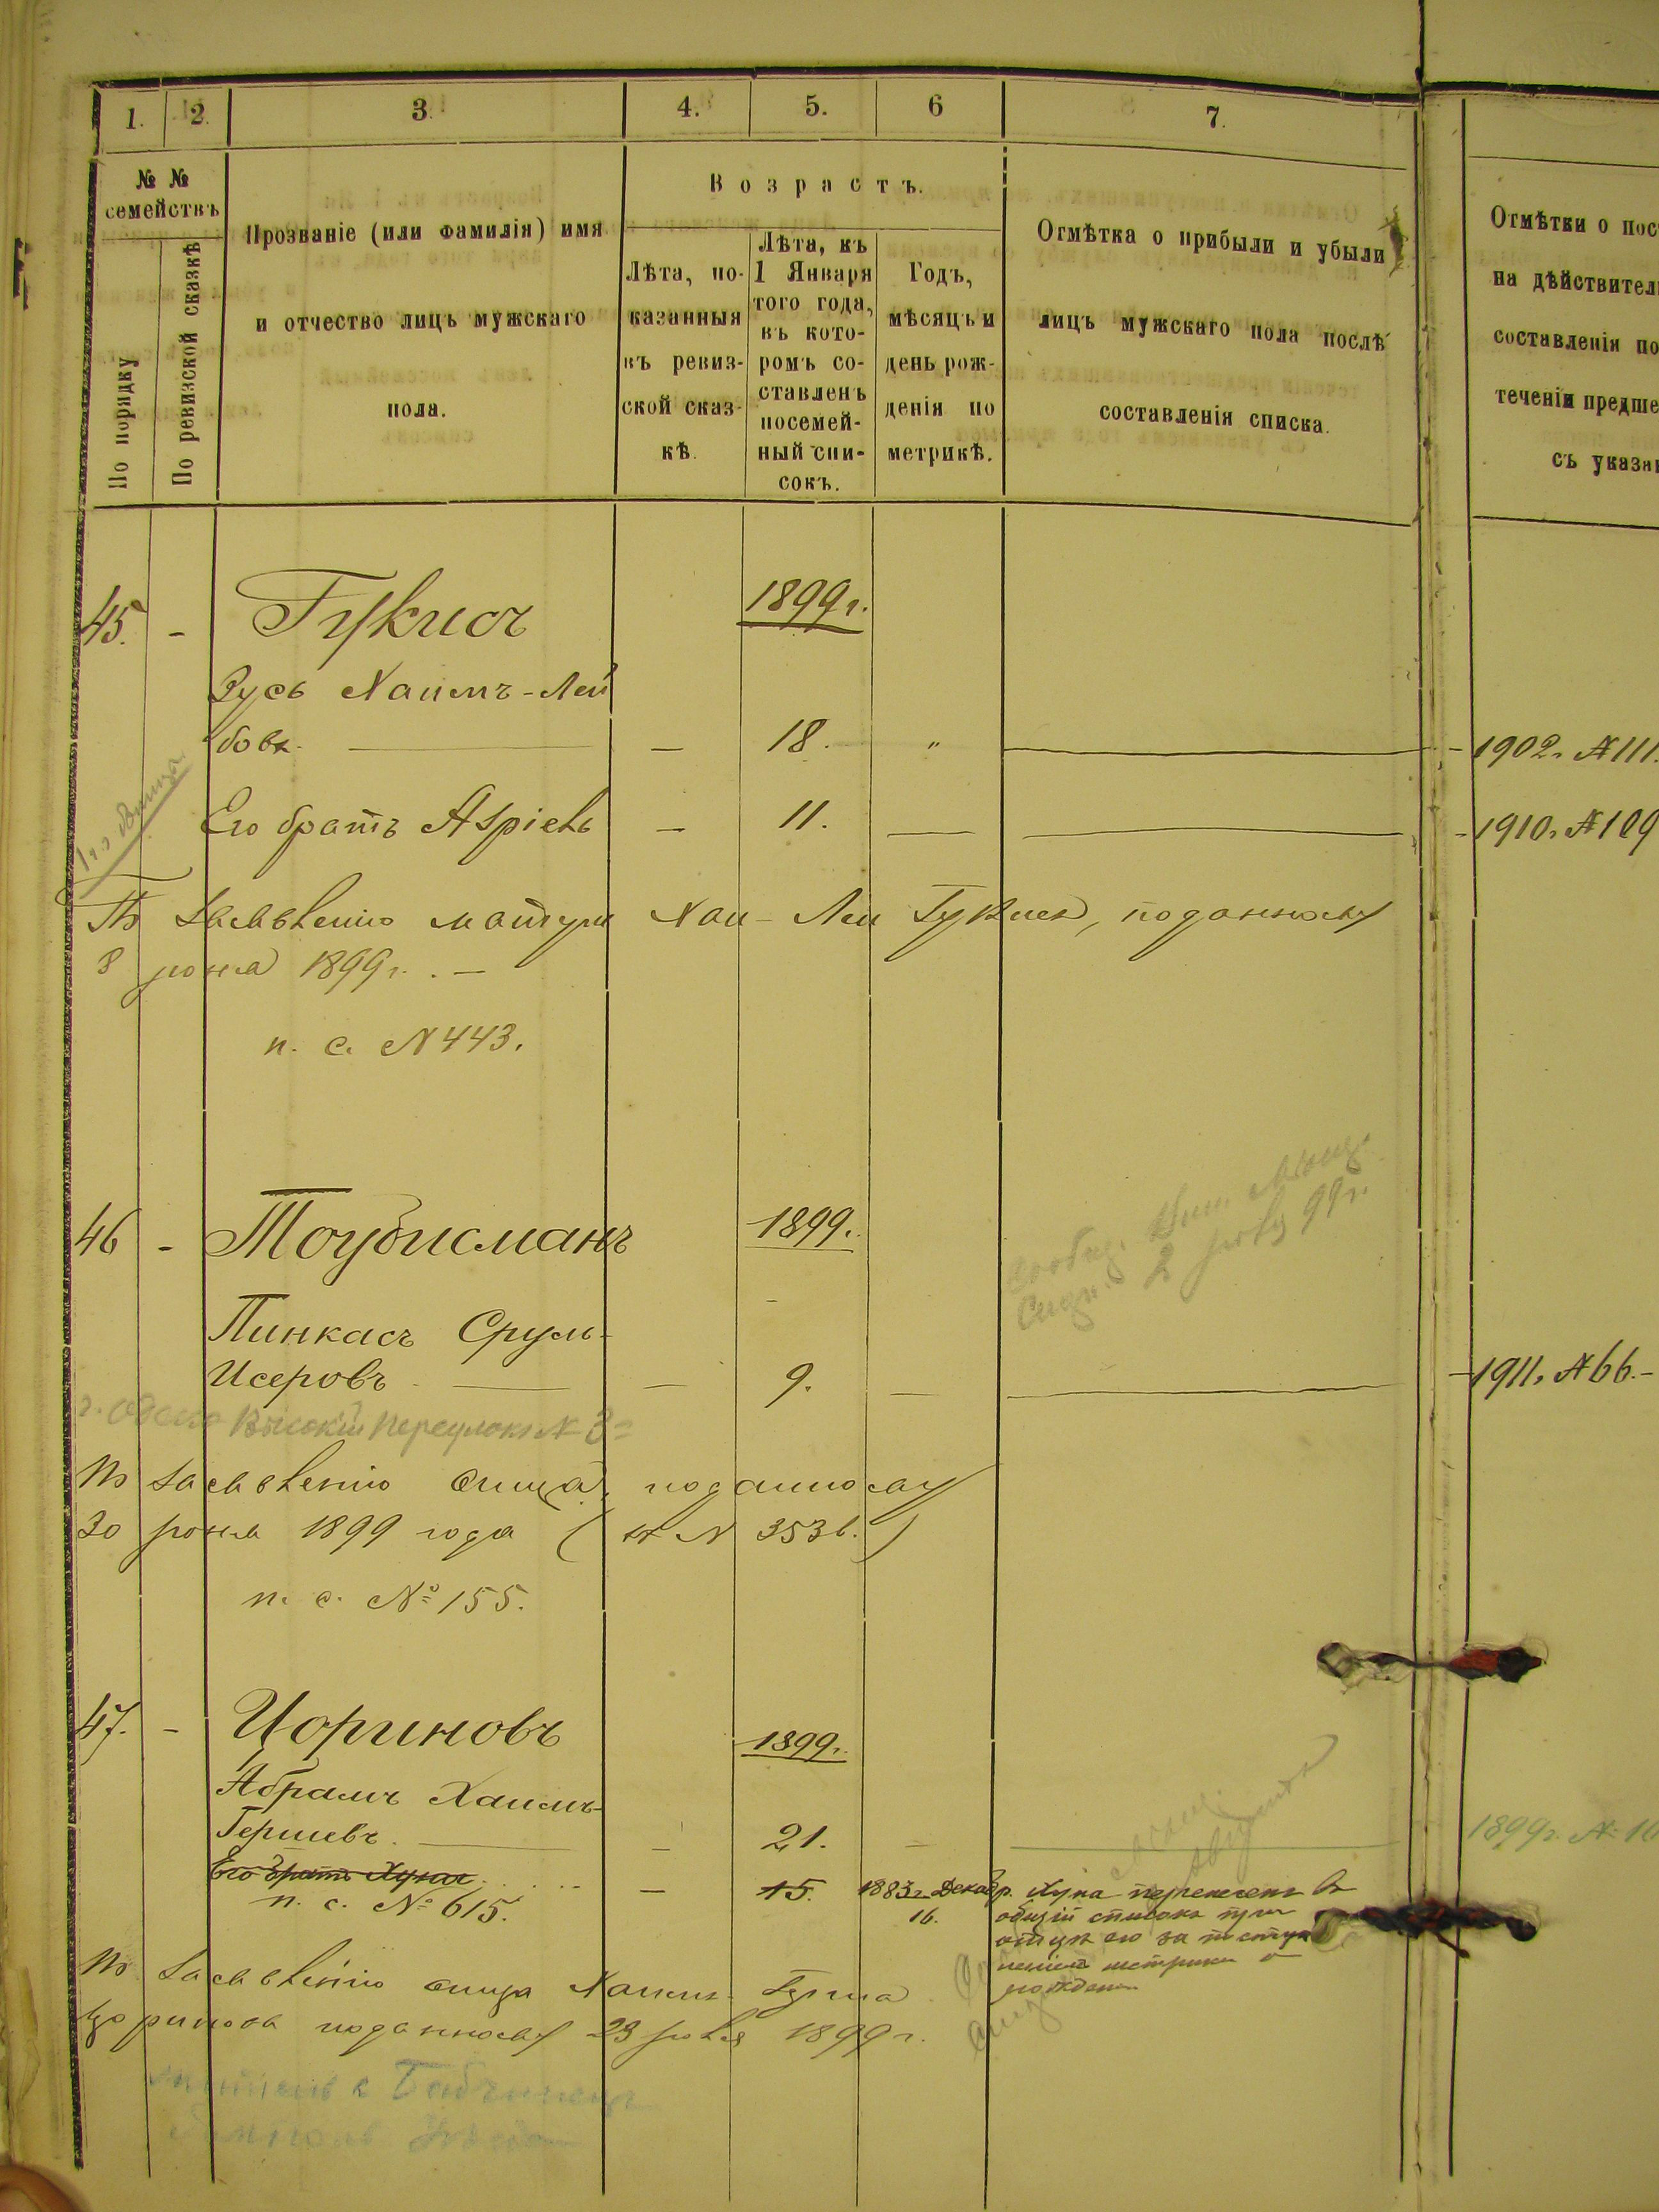 1. 2. 3. 4. 5. 6 7.
№ №
семействъ
По порядку
По ревизской сказкѣ
Прозваніе (или фамилія) имя
и отчество лицъ мужскаго
пола.
Возрастъ.
Лѣта, по-
казанныя
въ ревиз-
ской сказ-
кѣ.
Лѣта, къ
1 Января
того года,
въ кото-
ромъ со-
ставленъ
посемей-
ный спи-
сокъ.
Годъ,
мѣсяцъ и
день рож-
денія по
метрикѣ.
Отмѣтка о прибыли и убыли
лицъ мужскаго пола послѣ
составленія списка.
Отмѣтки о пос
на дѣйствител
составленія по
теченіи предше
съ указан
45. - Гукисъ 1899 г.
Зусь Хаимъ-Лей
бовъ. — — 18. „ — 1902 г. № 111.
Его братъ Азріель — 11. — — 1910 г. № 109
По заявленію матери Хаи-Леи Гукисъ, поданному
8 іюня 1899 г. . —
п. с. № 443.
46 - Тоубисманъ 1899 г.
2 99 г.
Пинкасъ Сруль-
Исеровъ — — 9. — — 1911 г. № 66. -
г. Одесса Высокій переулокъ № 3
По заявленію отца, поданному
30 іюня 1899 года ( № 3536.)
п. с. № 155.
47. - Цориновъ 1899 г.
Абрамъ Хаимъ-
Гершевъ. — — 21. — — 1899 г. № 10
Его братъ Хуна — 15. 1883 г. Декабр. 16.
п. с. № 615.
Хуна перенесенъ въ
общій списокъ при
отцѣ его за
метрики о
рожденіи
По заявленію отца Хаимъ Герша
Цоринова поданному 23 1899 г.